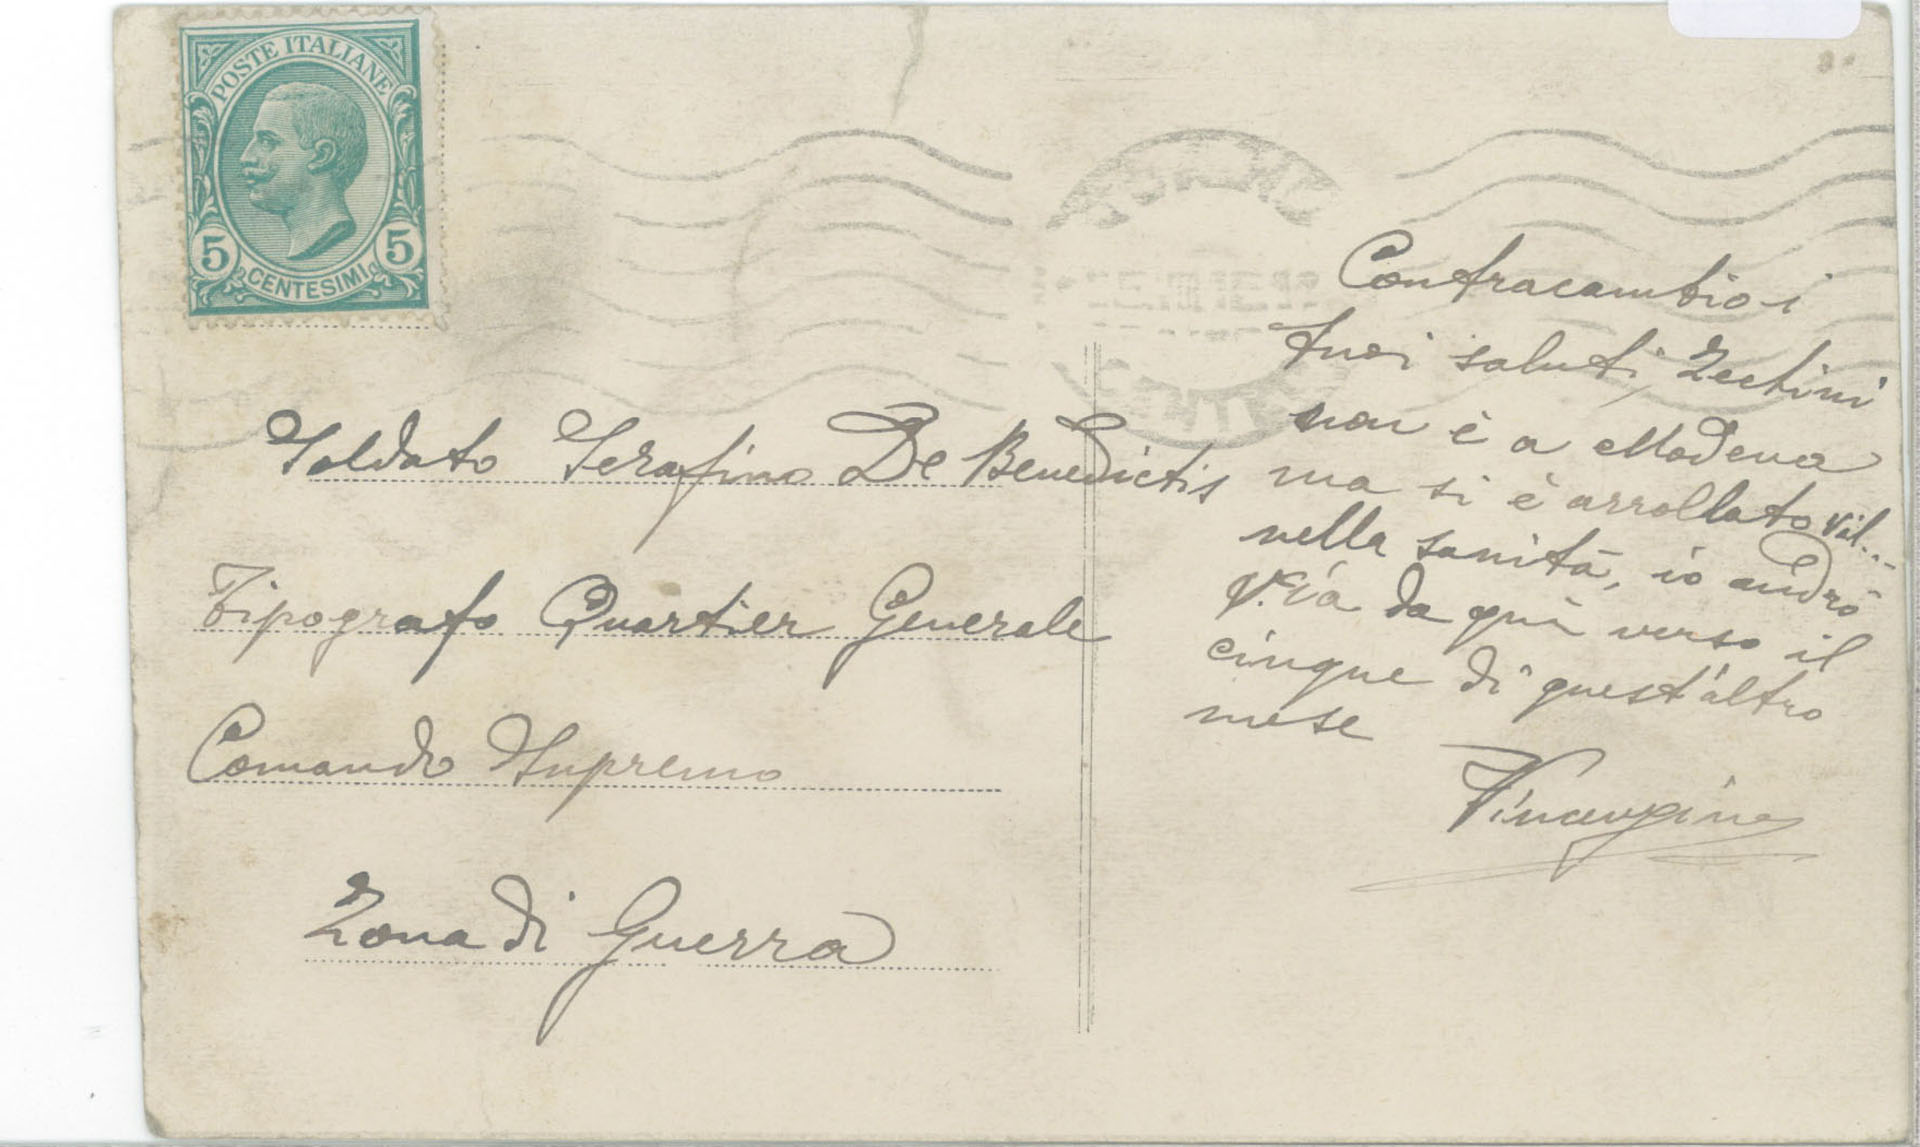 POSTE ITALIANE
5 5
CENTESIMI
Soldato Serafino De Benedictis
Tipografo Quartier Generale
Comando Supremo
Zona di Guerra
TORINO
CENTRO
Contracambio i
tuoi saluti, Zechini
non è a Modena
ma si è arrollato Vol..
nella sanità, io andrò
via da quì verso il
cinque di quest'altro
mese